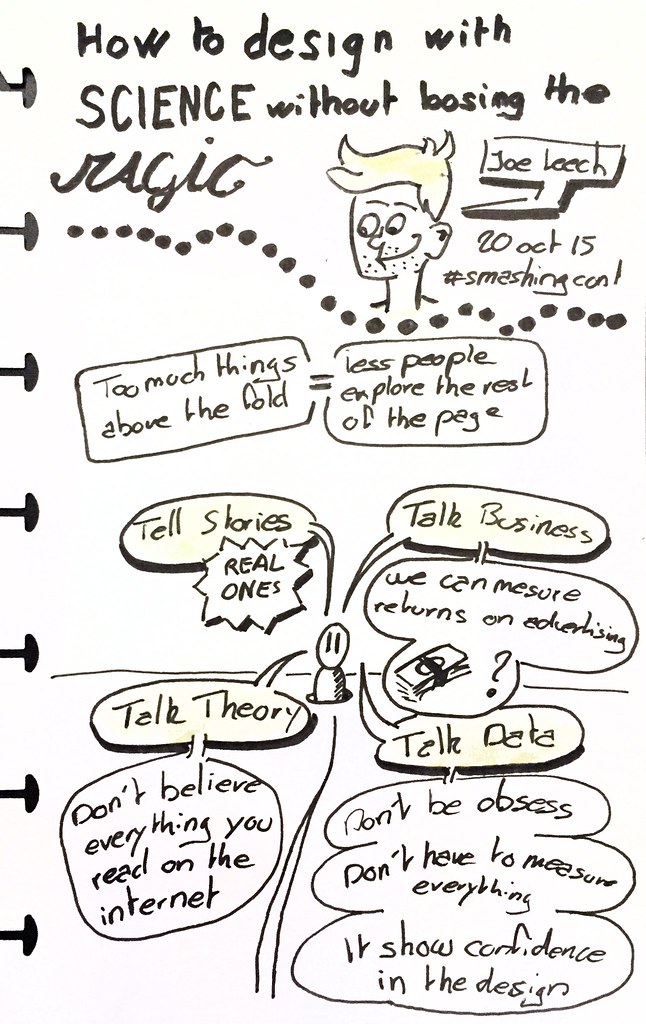 How to design with
SCIENCE without losing the
MAGIC
Joe Leech
20 oct 15
#smashingconf
Too much things
above the fold
=
less people
explore the rest
of the page
Tell Stories
REAL
ONES
Talk Business
we can mesure
returns on advertising
?
Talk Theory
Don't believe
everything you
read on the
internet
Talk Data
Don't be obsess
Don't have to measure
everything
It show confidence
in the design